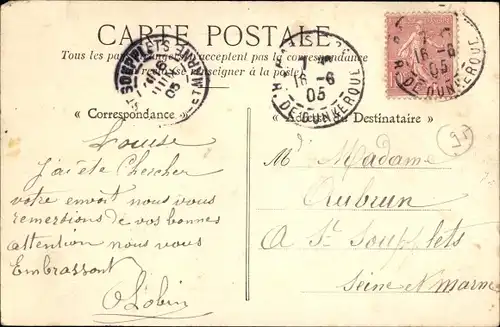 CARTE POSTALE
Tous les pays étrangers n'acceptent pas la correspondance
se renseigner à la poste
« Correspondance »
Destinataire »
Louise
J'ai été Chercher
votre envoit nous vous
remersions de vos bonnes
attention nous vous
Embrassont
O Lobin
Mr Madame
Aubrun
A St. Soupplets
Seine et Marne
SOUPPLETS
MARNE
05
16 -6
05
R. DE DUNKERQUE
16 -6
05
R. DE DUNKERQUE